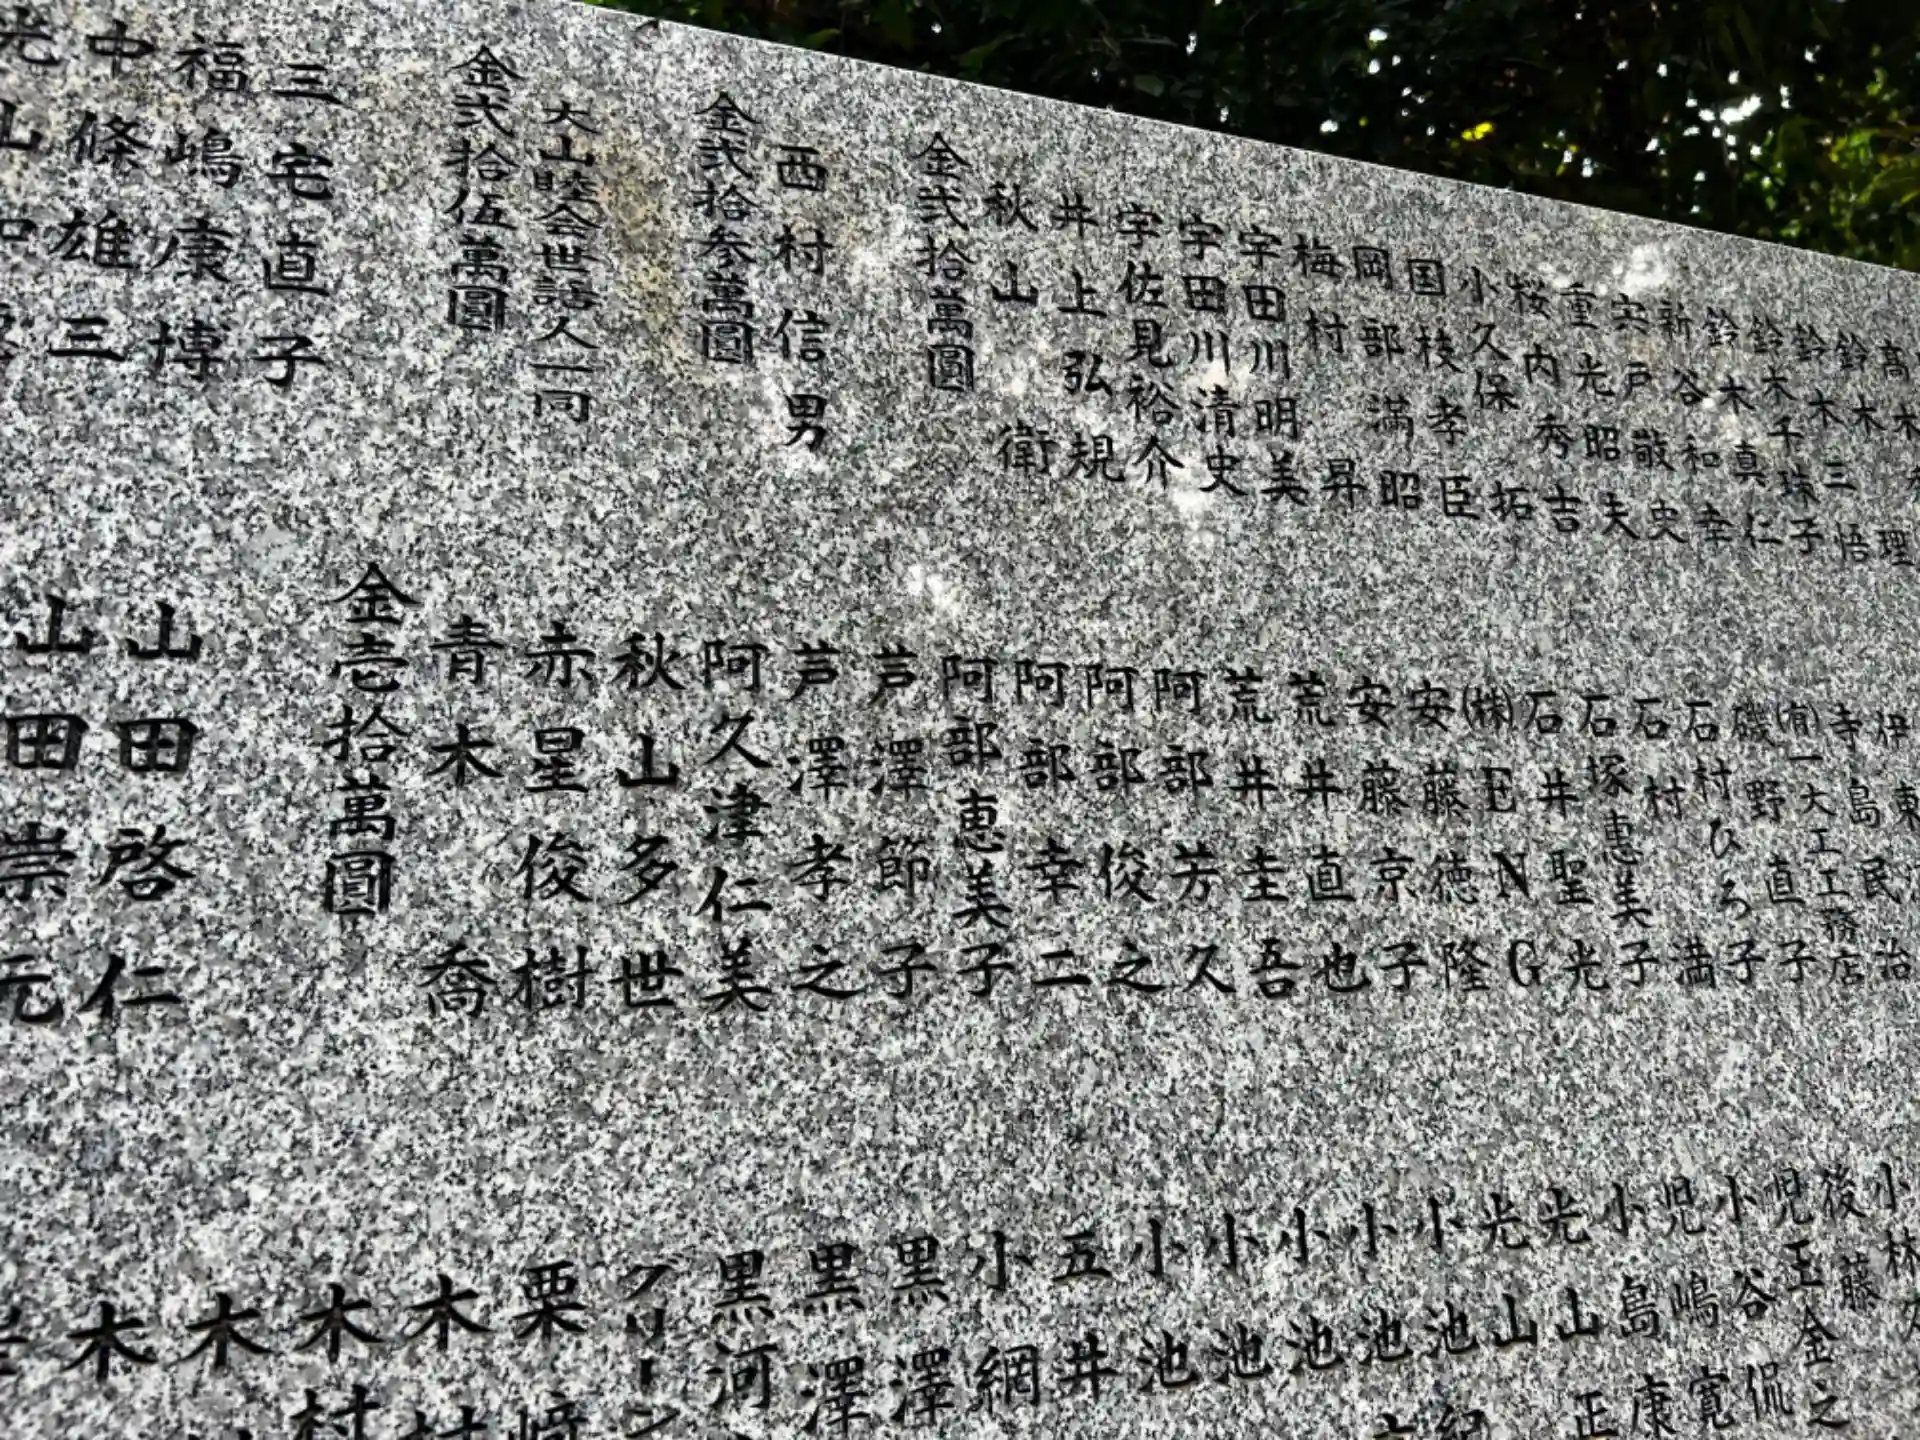 中條雄三
福嶋康博
三宅直子
金弐拾伍萬圓
大山睦会世話人一同
金弐拾参萬圓
西村信男
金弐拾萬圓
秋山衛
井上弘規
宇佐見裕介
宇田川清史
宇田川明美
梅村昇
岡部満昭
国枝孝臣
小久保拓
桜内秀吉
重光昭夫
宍戸敬史
新谷和幸
鈴木真仁
鈴木千珠子
鈴木三悟
山田崇元
山田啓仁
金壱拾萬圓
青木喬
赤星俊樹
秋山多世
阿久津仁美
芦澤孝之
芦澤節子
阿部恵美子
阿部幸二
阿部俊之
阿部芳久
荒井圭吾
荒井直也
安藤京子
安藤徳隆
㈱ENG
石井聖光
石塚恵美子
石村満
石村ひろ子
磯野直子
㈲一大工工務店
寺島民治
伊東
木
木
木村
木村
栗崎
グリーン
黒河
黒澤
黒澤
小網
五井
小池
小池
小池
小池
小池
光山
光山正
小島康
児嶋寛
小谷侃
児玉金之
後藤
小林久